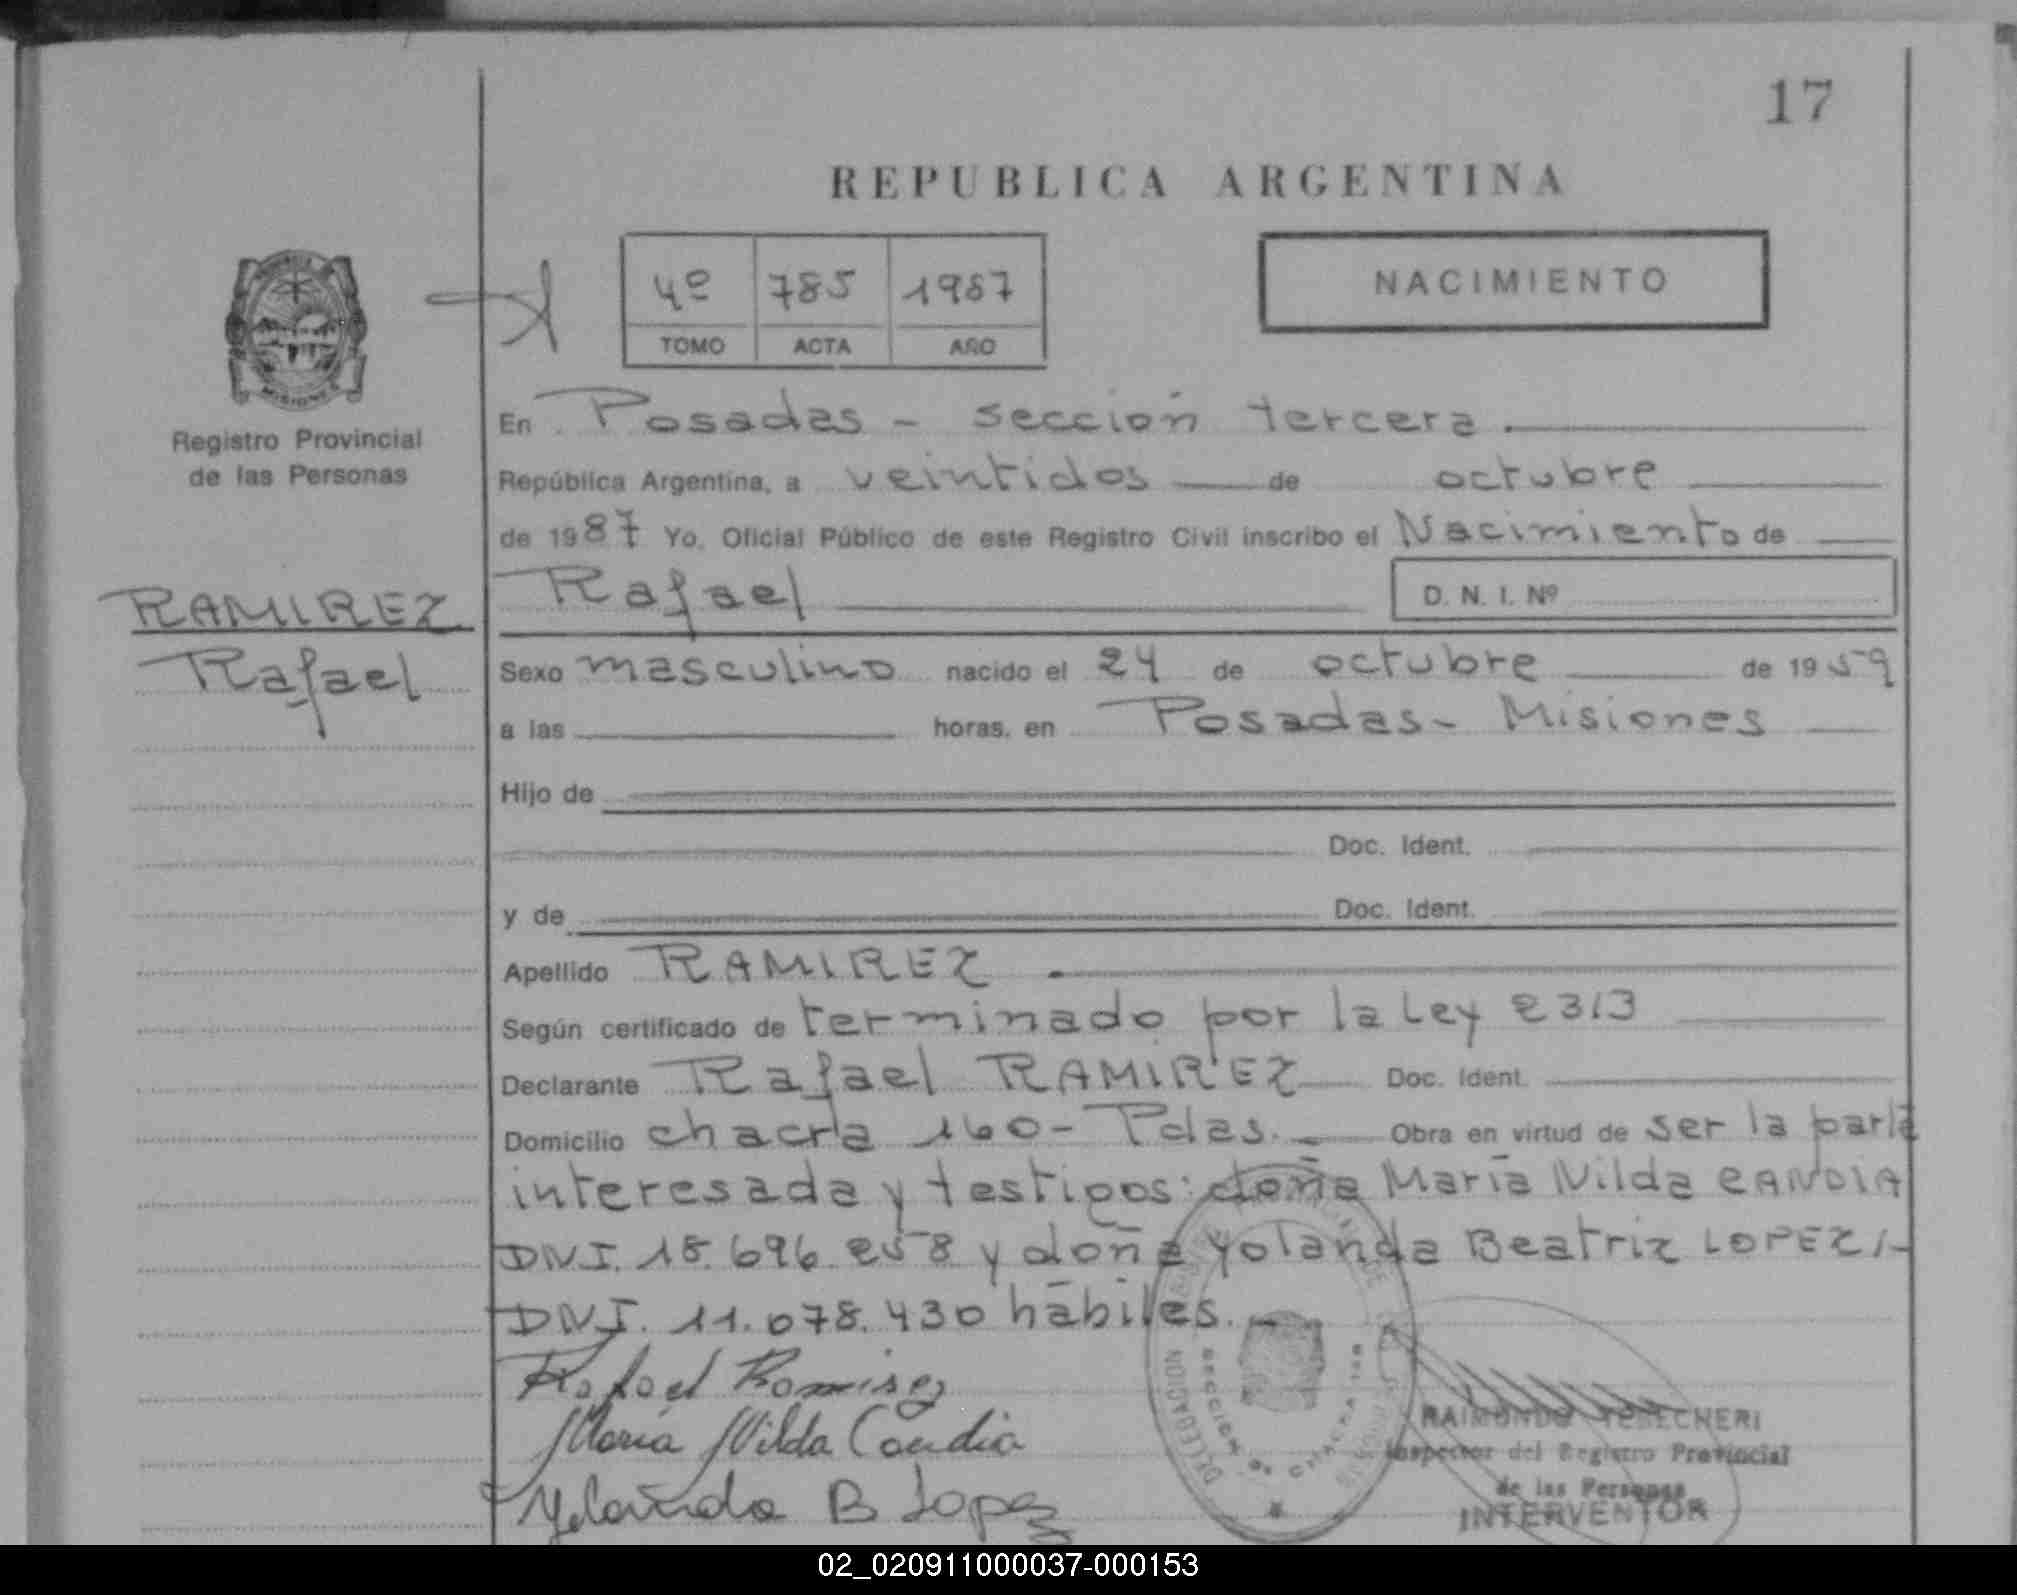 17
REPUBLICA ARGENTINA
4º 785 1987
TOMO ACTA AÑO
NACIMIENTO
MISIONES
Registro Provincial
de las Personas
RAMIREZ
Rafael
En Posadas - sección tercera.
República Argentina, a veintidos de octubre
de 1987 Yo, Oficial Público de este Registro Civil inscribo el Nacimiento de
Rafael D. N. I. Nº
Sexo masculino nacido el 24 de octubre de 1959
a las horas, en Posadas - Misiones
Hijo de
Doc. Ident.
y de Doc. Ident.
Apellido RAMIREZ
Según certificado de terminado por la Ley 2313
Declarante Rafael RAMIREZ Doc. Ident.
Domicilio chacra 160 - Pdas. Obra en virtud de ser la parte
interesada y testigos: doña María Nilda CANDIA
DNI. 18.696.258 y doña Yolanda Beatriz LOPEZ
DNI. 11.078.430 hábiles.
Rafael Ramirez
María Nilda Candia
Yolanda B Lopez
DELEGACION
SECCION
RAIMUNDO
Inspector del Registro Provincial
de las Personas
INTERVENTOR
02_020911000037-000153